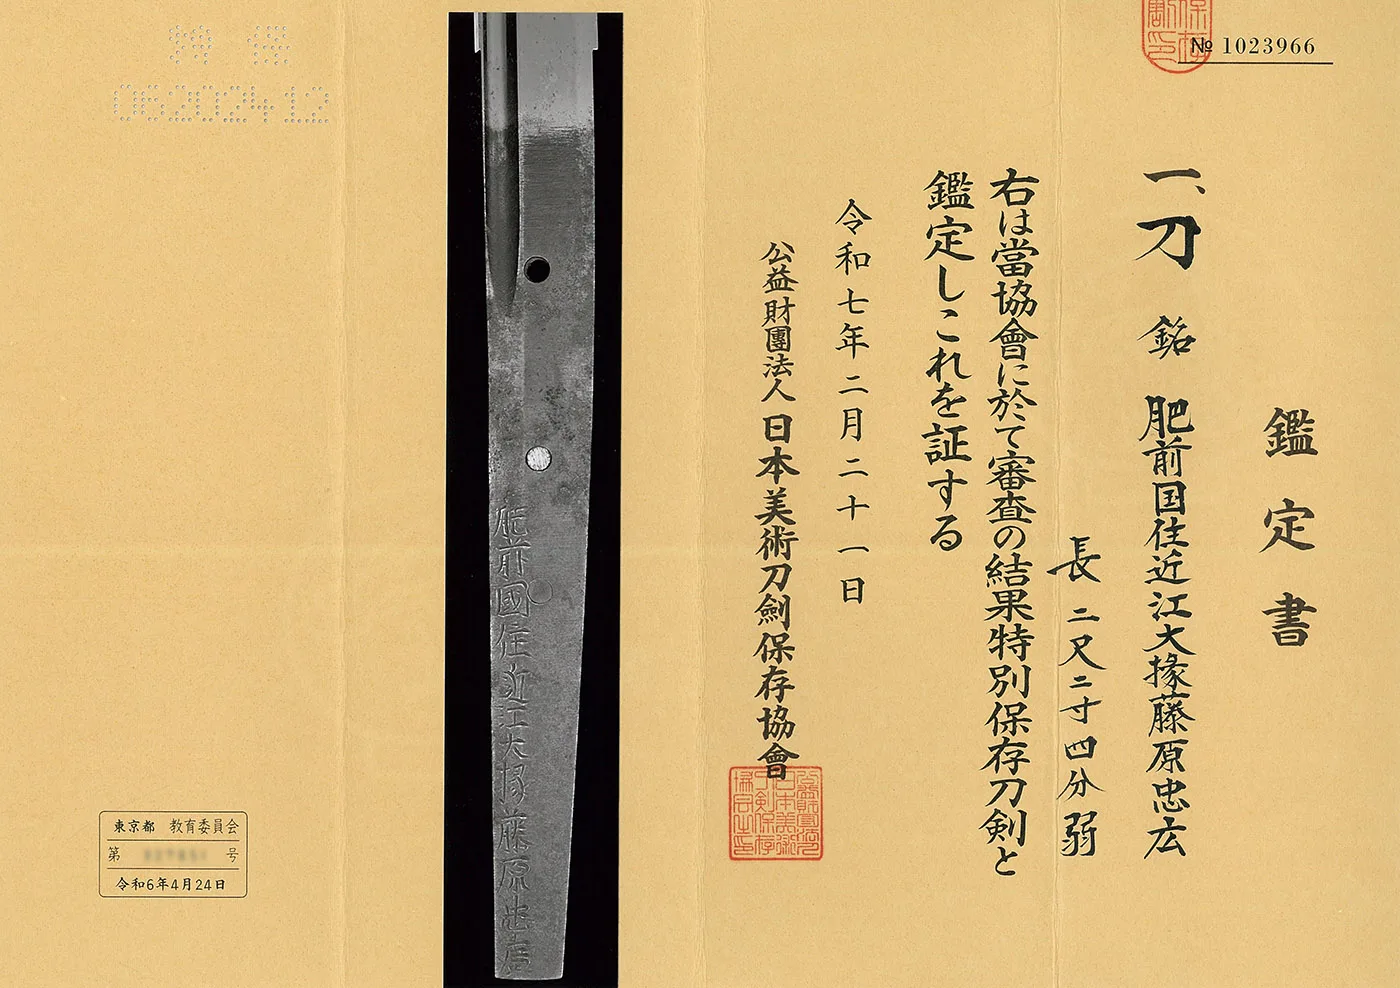 № 1023966
鑑定書
一、刀 銘 肥前国住近江大掾藤原忠広
長二尺二寸四分弱
右は當協會に於て審査の結果特別保存刀剣と
鑑定しこれを証する
令和七年二月二十一日
公益財團法人日本美術刀劍保存協會
肥前國住近江大掾藤原忠廣
特 保
062002412
東京都 教育委員会
第 号
令和6年4月24日